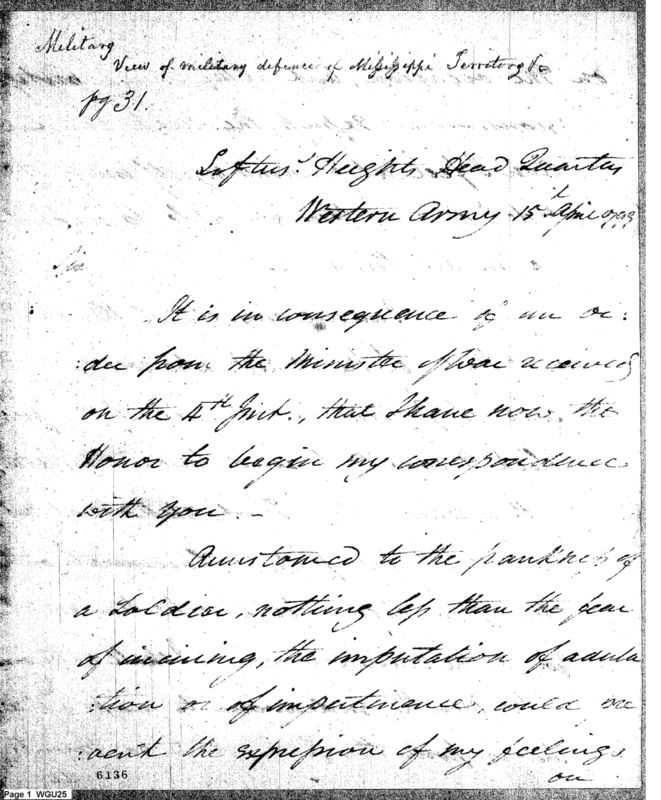 Military
View of military defence of Missisippi Territory &c
pg 31.
Loftus' Heights Head Quarters
Western Army 15th April 1799
Sir
It is in consequence of an or:
:der from the Minister of War received
on the 4th Inst., that I have now the
Honor to begin my correspondence
with you. –
Accustomed to the frankness of
a Soldier, nothing less than the fear
of incuring, the imputation of adula
:tion or of impertinence, could pre
:vent the expression of my feelings
on
6136
Page 1 WGU25